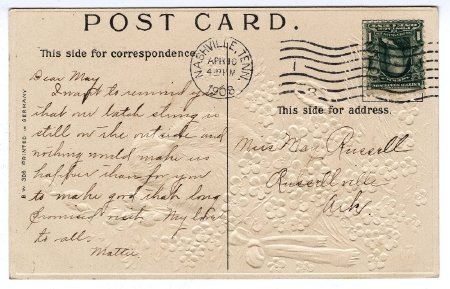 POST CARD.
This side for correspondence.
NASHVILLE, TENN.
APR 16
4 PM
1908
1
3
This side for address.
B.W. 306 PRINTED IN GERMANY
Dear May
I want to remind you
that our latch string is
still on the outside and
nothing would make us
happier than for you
to make good that long
promised visit. My love
to all.
Mattie.
Miss May Russell
Russellville
Ark.